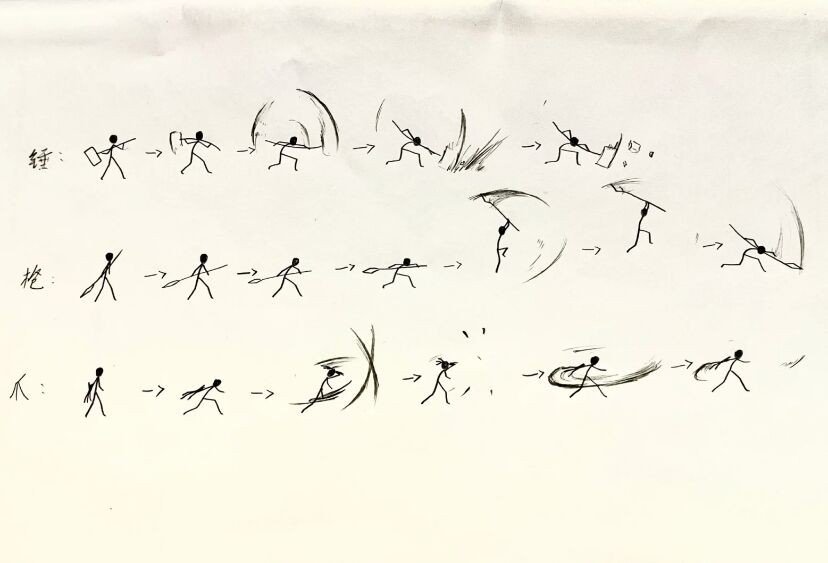 锤:
枪:
爪: